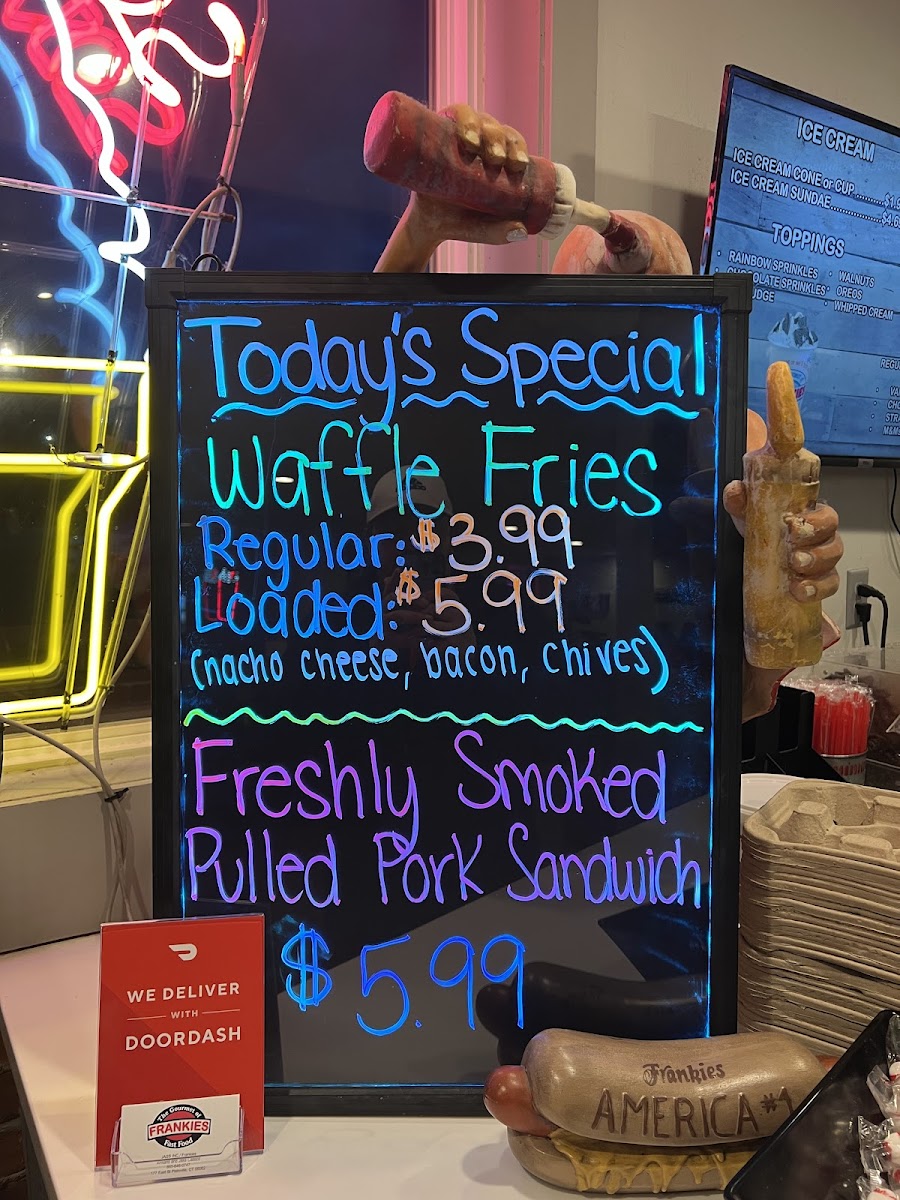 Today's Special
Waffle Fries
Regular: $3.99
Loaded: $5.99
(nacho cheese, bacon, chives)
Freshly Smoked
Pulled Pork Sandwich
$5.99
ICE CREAM
ICE CREAM CONE or CUP
ICE CREAM SUNDAE
TOPPINGS
• RAINBOW SPRINKLES
CHOCOLATE SPRINKLES
• WALNUTS
• OREOS
• WHIPPED CREAM
WE DELIVER
WITH
DOORDASH
The Gourmet of
FRANKIES
Fast Food
Frankies
AMERICA #1